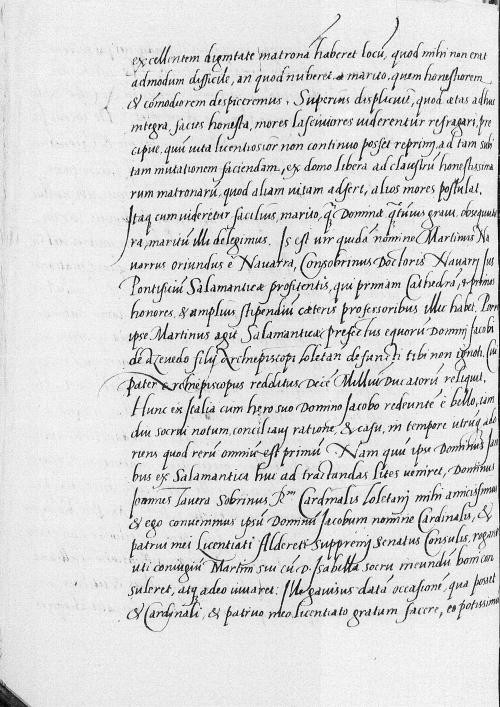 excellentem dignitate matronā haberet locū, quod mihi non erat
admodum difficile, an quod nuberet marito, quem honestiorem
& cōmodiorem despiceremus. Superius displicuit, quod ætas adhuc
integra, facies honesta, mores lasciuiores uiderentur refragari, præ
cipue, quū uita licentiosior non continuo posset reprimi, ad tam subi
tam mutationem faciendam, ex domo libera ad claustrū honestissima
rum matronarū, quod aliam uitam adfert, alios mores postulat.
Itaq cum uideretur facilius, marito, q̄ Dominæ q̄tūuis graui, obsequutu
ra, maritū illi delegimus. Is est uir quidā nomine Martinus Na
uarrus oriundus è Nauarra, Consobrinus Doctoris Nauarri Ius
Pontificiū Salamanticæ profitentis, qui primam Cathedrā, & primos
honores, & amplius stipendiū cæteris professoribus illic habet. Porro
ipse Martinus agit Salamanticæ præfectus equorū Domini Jacobi
de Azeuedo filij Archiepiscopi Toletani defuncti tibi non ignoti. Cui
pater Archiepiscopus redditus Decē Milliū Ducatorū reliquit.
Hunc ex Italia cum hero suo Domino Jacobo redeuntē è bello, iam
diu socrui notum, conciliaui ratione, & casu, in tempore utrūq ado
rens quod rerū omniū est primū. Nam quū ipse Dominus Jaco
bus ex Salamantica huc ad tractandas lites ueniret, Dominus
Joannes Tauera Sobrinus R.mi Cardinalis Toletani mihi amicissimus
& ego conuenimus ipsū Dominū Jacobum nomine Cardinalis, &
patrui mei Licentiati Alderete Suppremi Senatus Consulis, rogant
uti coniugiū Martini sui cū D. Isabella socru ineundū boni con
suleret, atq adeo iuuaret: Ille gauisus datā occasionē, qua posset
& Cardinali, & patruo meo licentiato gratum facere, eo potissimū